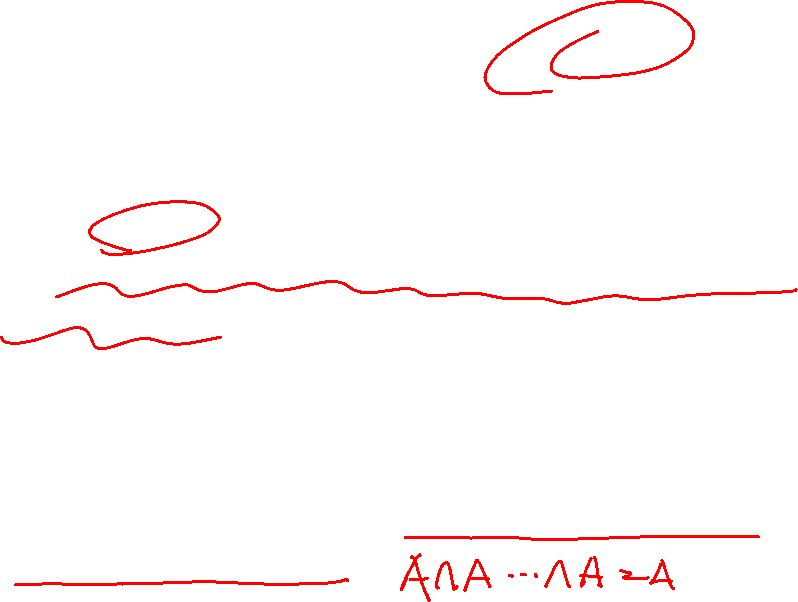 A∩A ⋯ ∩A = A